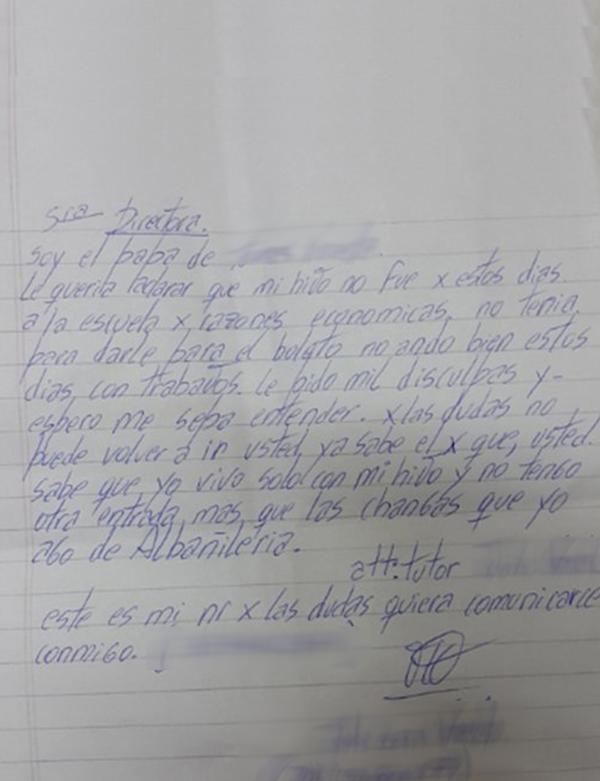 Sra Directora.
soy el papa de
Le queria aclarar que mi hijo no fue x estos dias
a la escuela x razones economicas, no tenia
para darle para el boleto no ando bien estos
dias, con trabajos. Le pido mil disculpas y-
espero me sepa entender. x las dudas no
puede volver a in usted, ya sabe el x que, usted.
sabe que, yo vivo solo con mi hijo y no tengo
otra entrada, mas, que las changas que yo
ago de Albañileria.
att: tutor
este es mi nr x las dudas quiera comunicarce
conmigo.